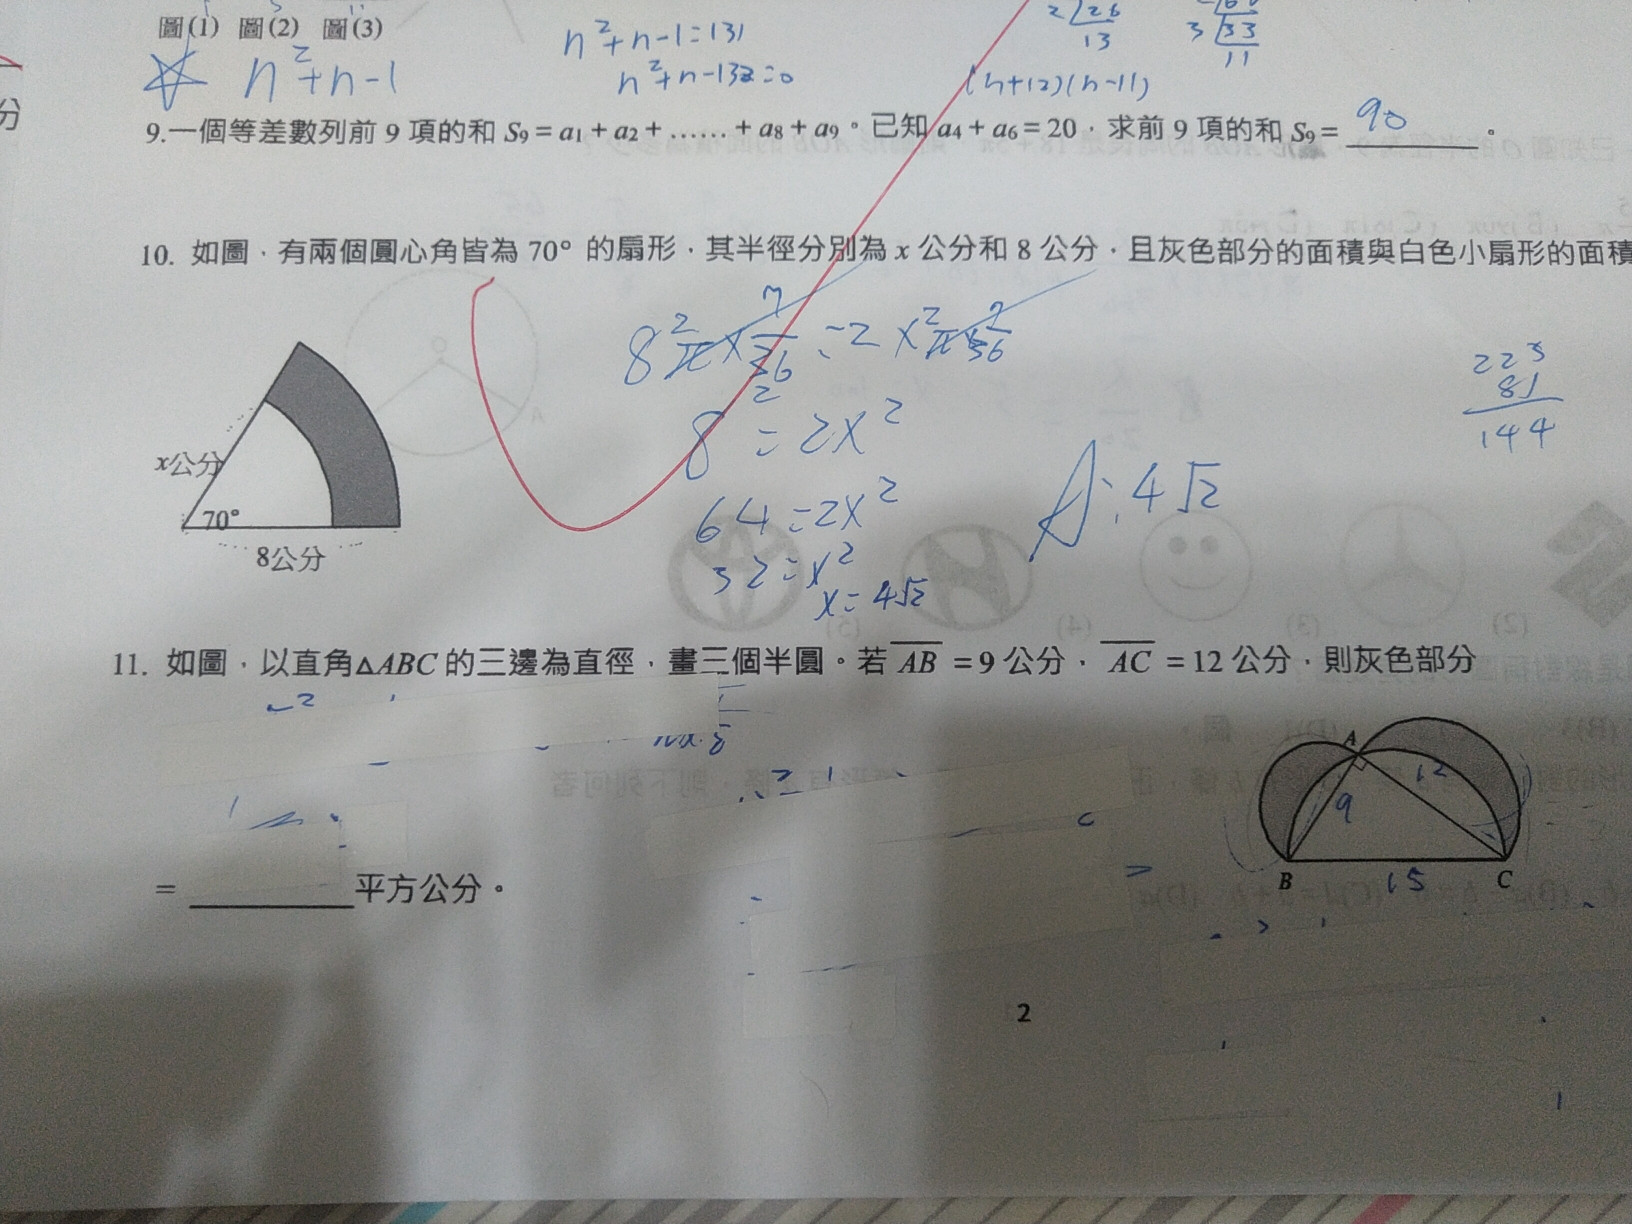 圖(1) 圖(2) 圖(3)
n²+n-1
n²+n-1=131
n²+n-132=0
2 26
13
3 33
11
(n+12)(n-11)
分
9.一個等差數列前 9 項的和 S₉ = a₁ + a₂ + …… + a₈ + a₉。已知 a₄ + a₆ = 20，求前 9 項的和 S₉ = 90 。
10. 如圖，有兩個圓心角皆為 70° 的扇形，其半徑分別為 x 公分和 8 公分，且灰色部分的面積與白色小扇形的面積
8²π×7/36=2x²π×7/36
8²=2x²
64=2x²
32=x²
x=4√2
A:4√2
225
81
144
x公分
70°
8公分
11. 如圖，以直角△ABC 的三邊為直徑，畫三個半圓。若 AB = 9 公分，AC = 12 公分，則灰色部分
A
12
9
B 15 C
= 平方公分。
2